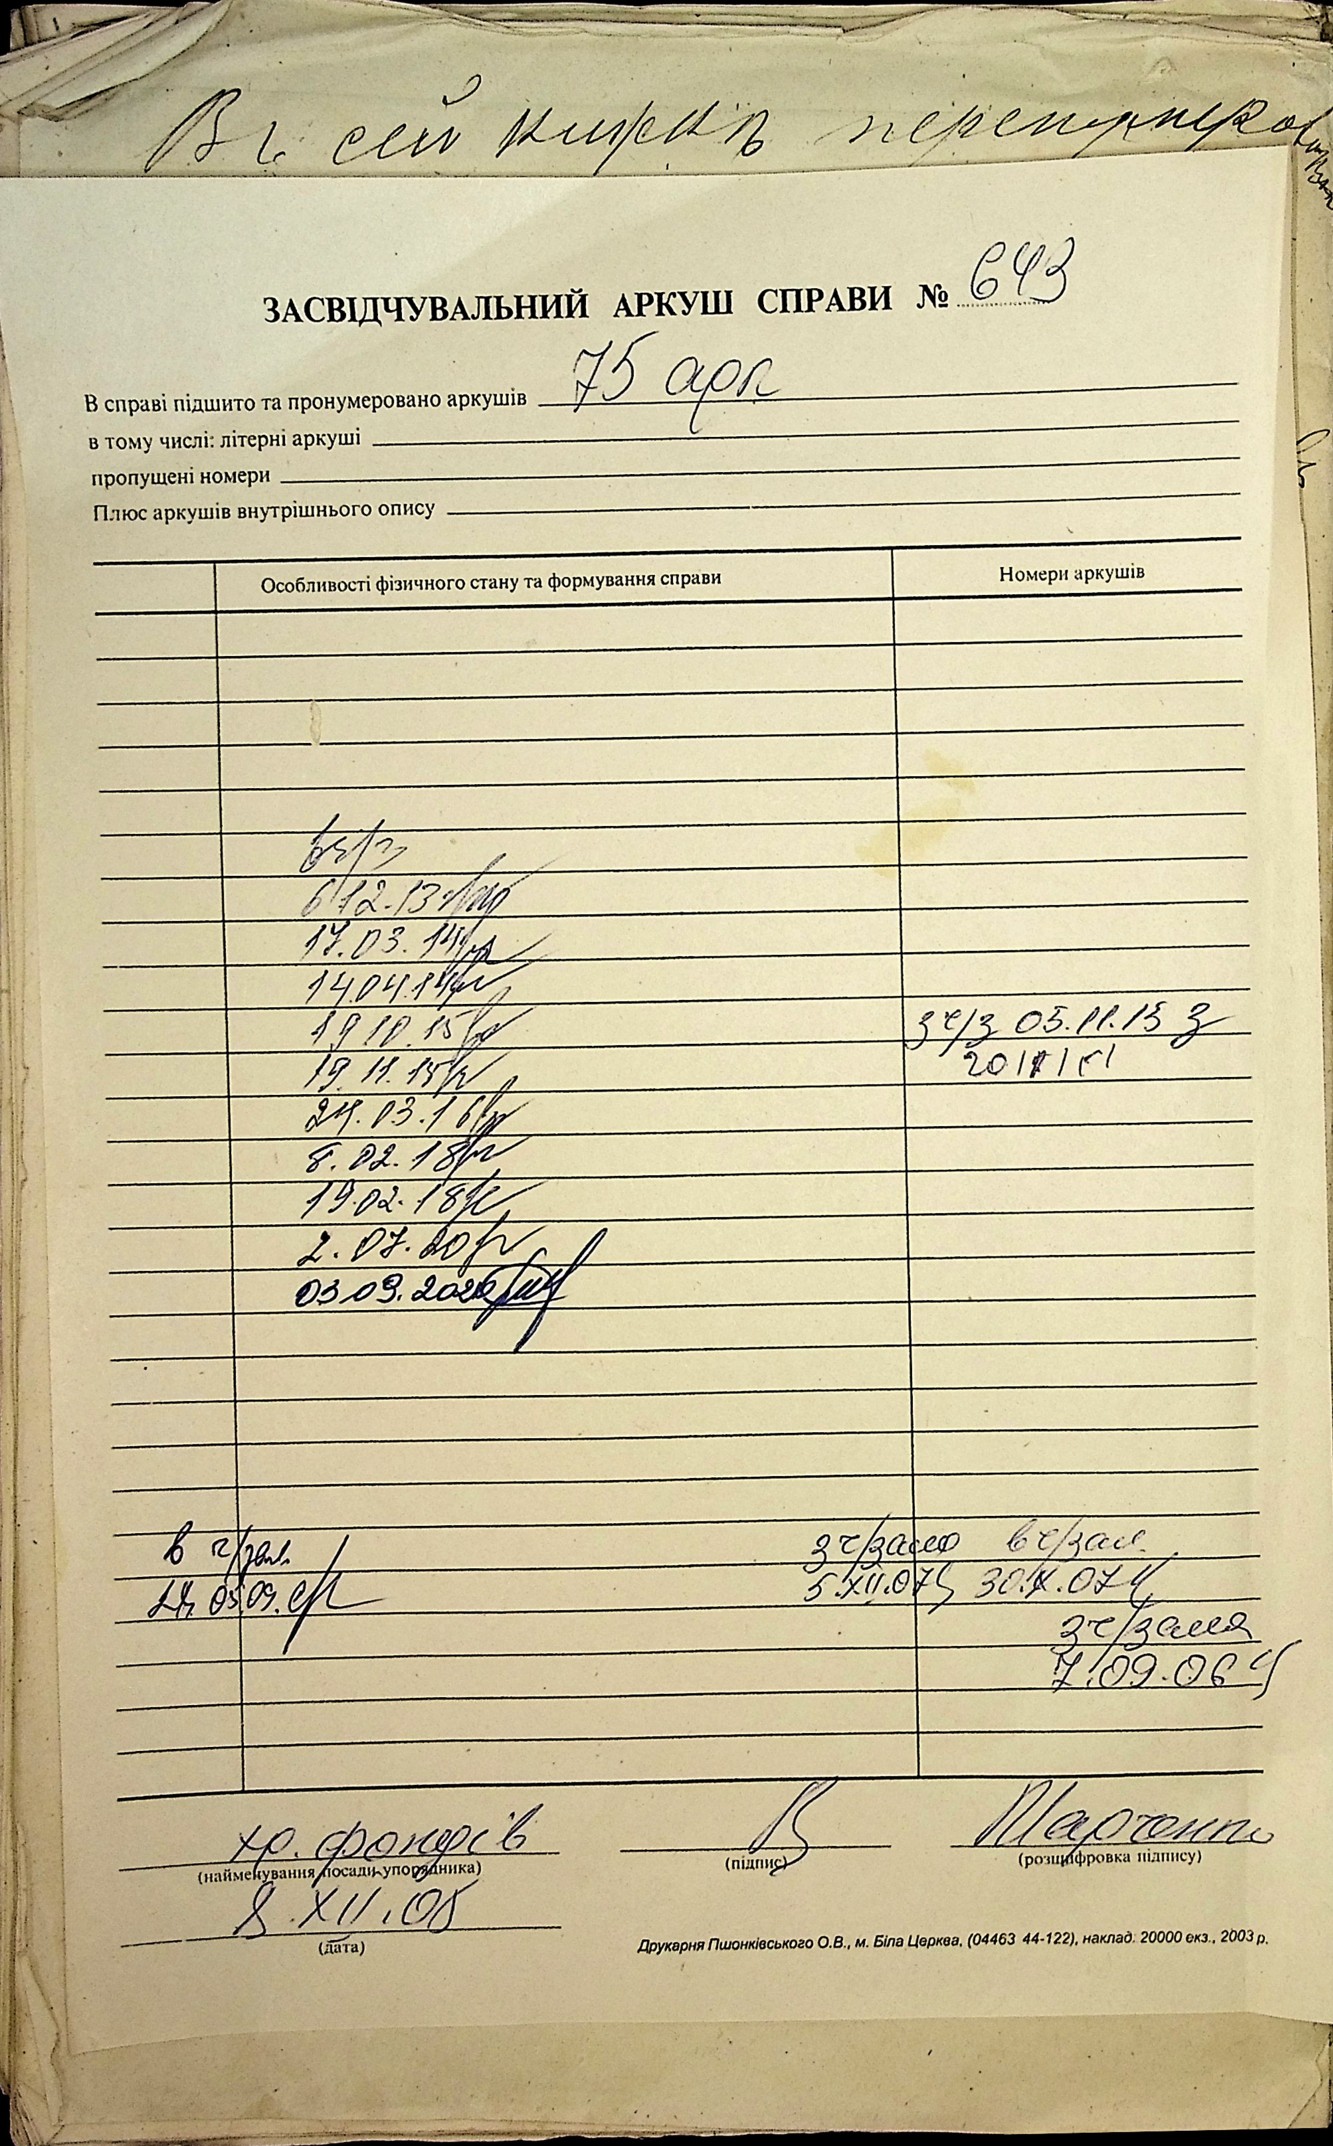 Въ сей книгѣ
ЗАСВІДЧУВАЛЬНИЙ АРКУШ СПРАВИ № 643
В справі підшито та пронумеровано аркушів 75 арк
в тому числі: літерні аркуші
пропущені номери
Плюс аркушів внутрішнього опису
Особливості фізичного стану та формування справи Номери аркушів
6 12.13
17.03.14
14.04.14
19 10.15 з ч/з 05.11.15
19.11.15
24.03.16
8.02.18
19.02.18
2.07.20
03 09.2020
в ч/зал. з ч/залю в ч/зал.
5.XII.07 30.X.07
з ч/заля
7.09.06
хр. фондів Марченко
(найменування посади упорядника) (підпис) (розшифровка підпису)
8.XII.05
(дата) Друкарня Пшонківського О.В., м. Біла Церква, (04463 44-122), наклад: 20000 екз., 2003 р.